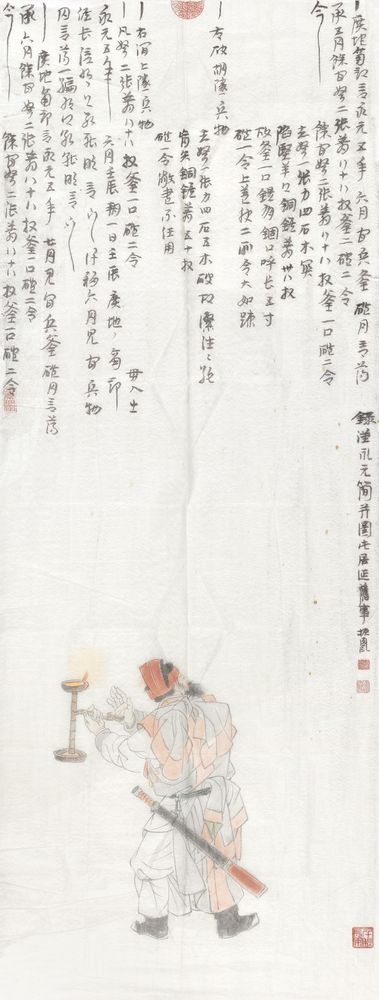 廣地南部言永元五年六月官兵釜磑月言簿
承五月餘官弩二張箭八十八枚釜一口磑二合
今餘官弩二張箭八十八枚釜一口磑二合
赤弩一張力四石木關
陷堅羊頭銅鍭箭卅八枚
故釜一口鍉有錮口呼長五寸
磑一合上蓋缺二所各大如疎
右破胡隧兵物
赤弩一張力四石五木破起繳往往絕
盲矢銅鍭箭五十枚
磑一合敝盡不任用
右澗上隧兵物
凡弩二張箭八十八枚釜一口磑二合 毋入出
永元五年六月壬辰朔一日壬辰廣地南部
候長信叩頭死罪敢言之謹移六月見官兵物
月言簿一編叩頭死罪敢言之
廣地南部言永元五年七月見官兵釜磑月言簿
承六月餘官弩二張箭八十八枚釜一口磑二合
今餘官弩二張箭八十八枚釜一口磑二合
錄漢永元簡并圖屯居延舊事